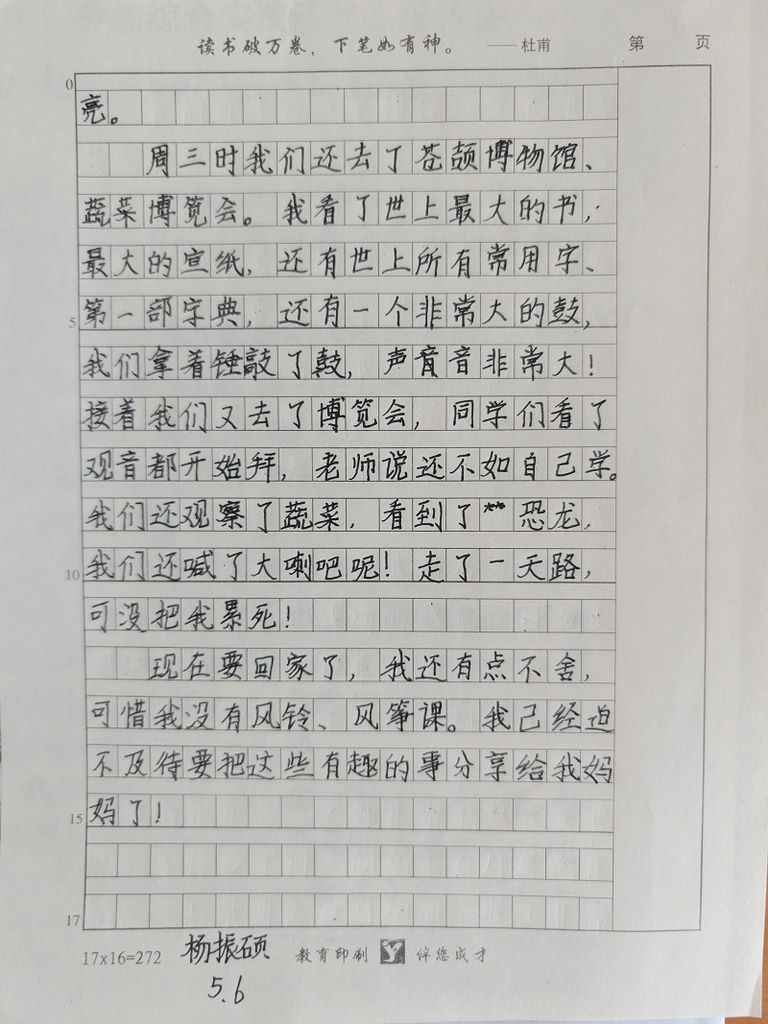 读书破万卷，下笔如有神。 ——杜甫 第 页
0
亮。
周三时我们还去了苍颉博物馆、
蔬菜博览会。我看了世上最大的书，
最大的宣纸，还有世上所有常用字、
5 第一部字典，还有一个非常大的鼓，
我们拿着锤敲了鼓，声音非常大！
接着我们又去了博览会，同学们看了
观音都开始拜，老师说还不如自己学。
我们还观察了蔬菜，看到了**恐龙，
10 我们还喊了大喇吧呢！走了一天路，
可没把我累死！
现在要回家了，我还有点不舍，
可惜我没有风铃、风筝课。我己经迫
不及待要把这些有趣的事分享给我妈
15 妈了！
17
17x16=272 杨振硕 教育印刷 伴您成才
5.6